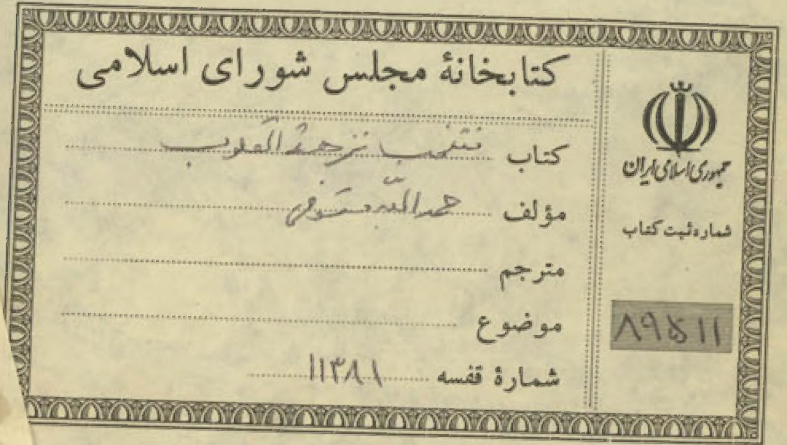 کتابخانهٔ مجلس شورای اسلامی
کتاب منتخب نزهة القلوب
مؤلف حمدالله مستوفی
مترجم
موضوع
شمارهٔ قفسه ۱۱۳۸۱
جمهوری اسلامی ایران
شماره ثبت کتاب
۸۹۵۱۱